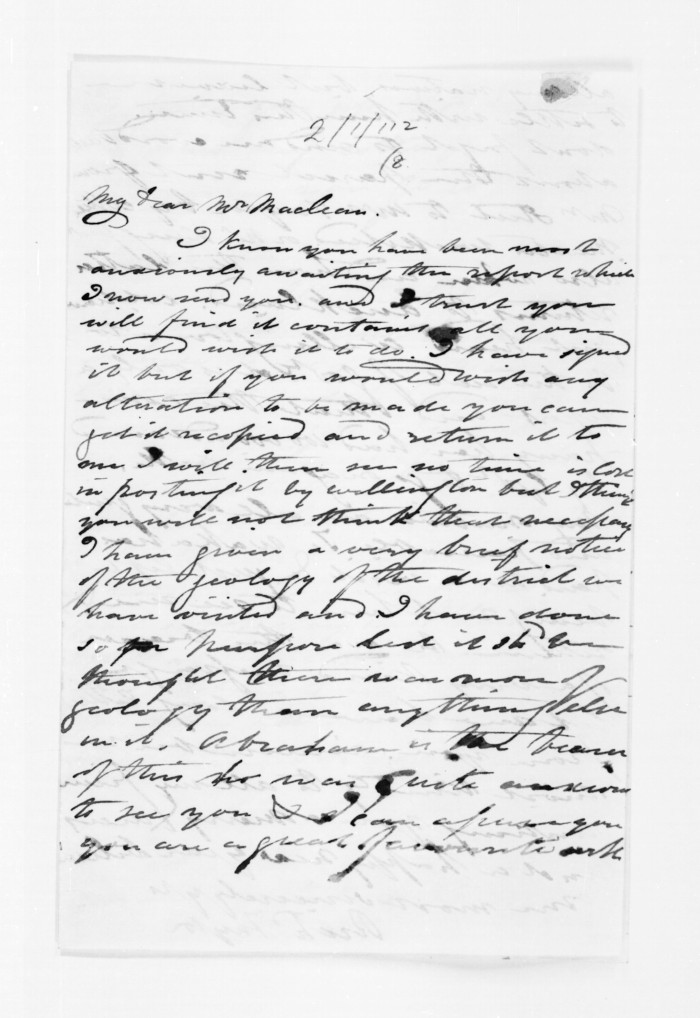 2/1/112
(8.
My dear Mr Maclean.
I know you have been most
anxiously awaiting the report which
I now send you. and I trust you
will find it contains all you
would wish it to do. I have signed
it but if you would wish any
alteration to be made you can
get it recopied and return it to
me. I will then see no time is lost
in posting it by wellington but I think
you will not think that necessary
I have given a very brief notice
of the geology of the district we
have visited and I have done
so on purpose lest it shd be
thought there was more of
geology than anything else
in it. Abraham is the bearer
of this who was quite anxious
to see you & I can assure you
you are a great favourite with